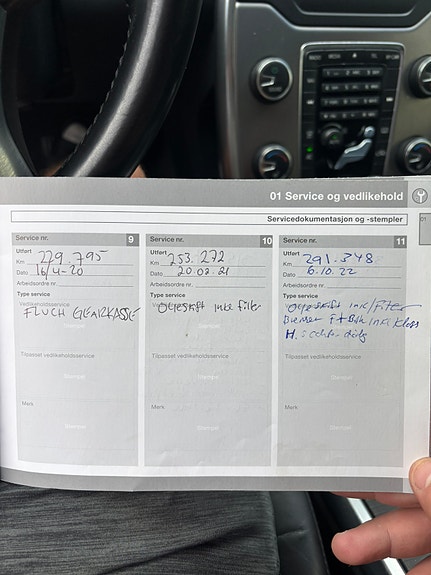 01 Service og vedlikehold
Servicedokumentasjon og -stempler
01
Service nr. 9
Utført
Km 229.795
Dato 16/4-20
Arbeidsordre nr.
Type service
Vedlikeholdsservice
FLUCH GEARKASSE
Stempel
Tilpasset vedlikeholdsservice
Stempel
Merk
Stempel
Service nr. 10
Utført
Km 253.272
Dato 20.02.21
Arbeidsordre nr.
Type service
Vedlikeholdsservice
Oljeskift inkl filter
Stempel
Tilpasset vedlikeholdsservice
Stempel
Merk
Stempel
Service nr. 11
Utført
Km 291.348
Dato 6.10.22
Arbeidsordre nr.
Type service
Oljeskift inkl filter
Bremser F + Bak inkl kloss
H.
Tilpasset vedlikeholdsservice
Stempel
Merk
Stempel